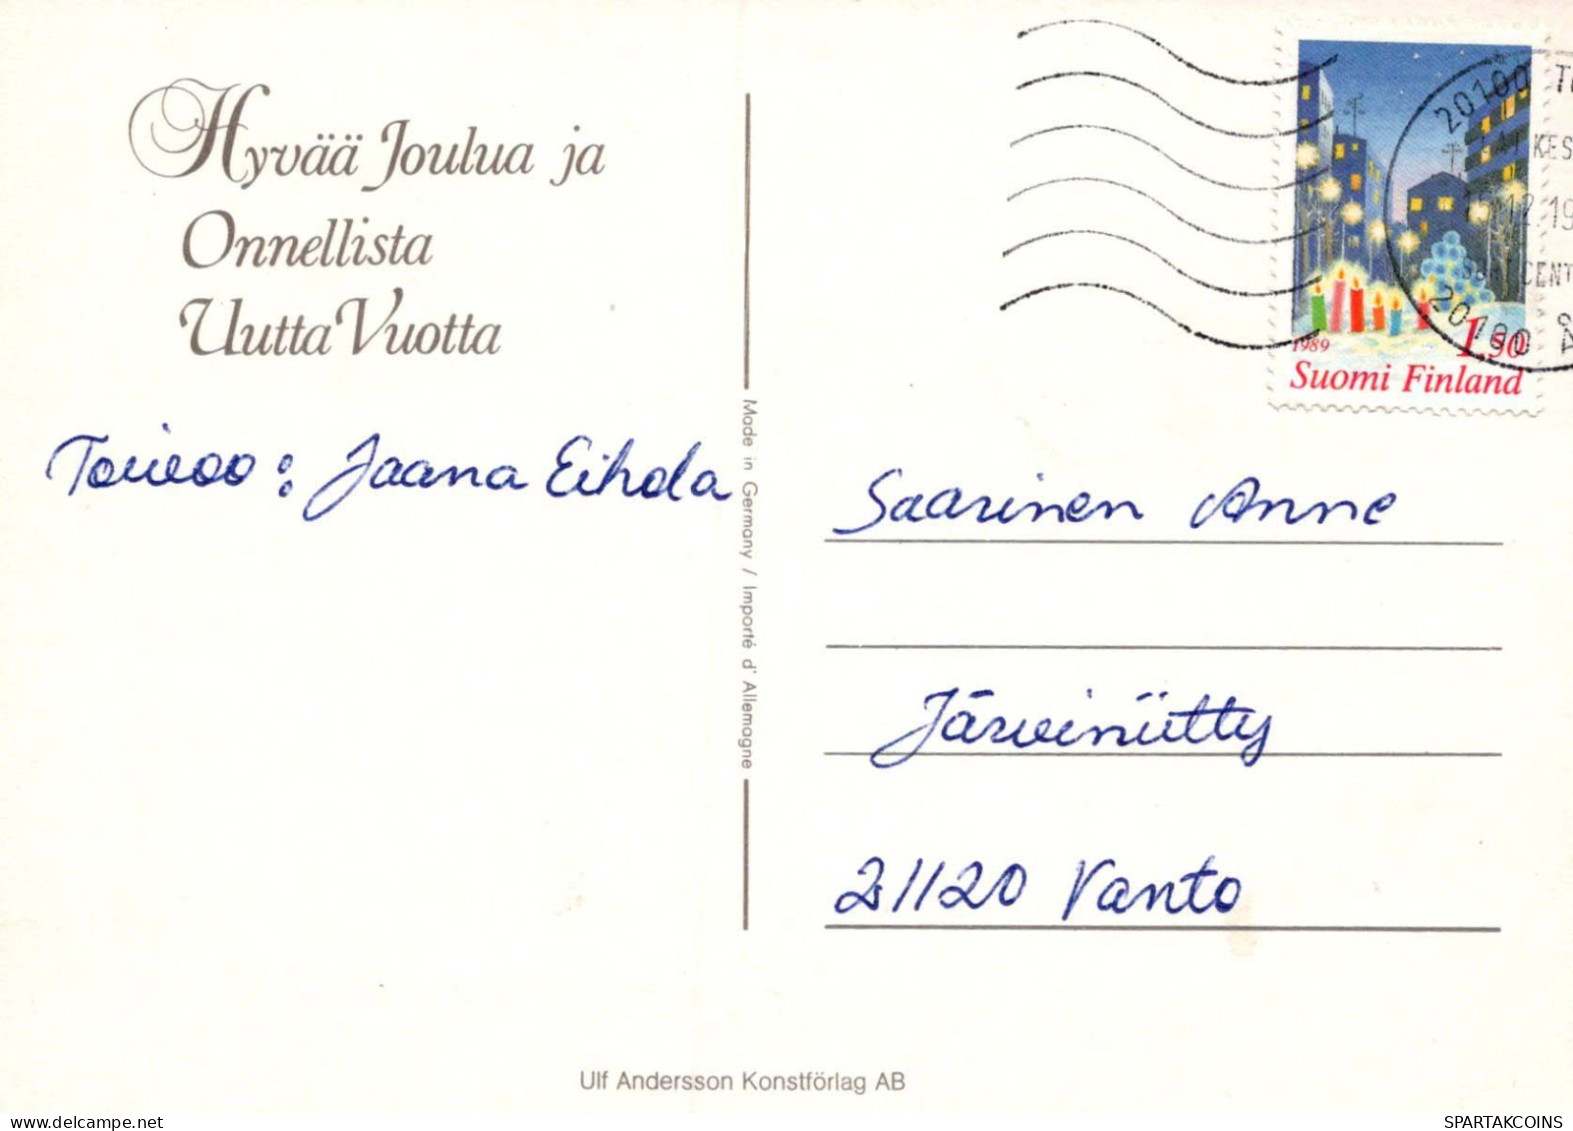 Hyvää Joulua ja
Onnellista
Uutta Vuotta
Toivoo: Jaana Eihola
Made in Germany / Importé d'Allemagne
20100 TU
KES
12.19
CENT
20100 Å
1989
1,50
Suomi Finland
Saarinen Anne
Järviniitty
21120 Vanto
Ulf Andersson Konstförlag AB
SPARTAKCOINS